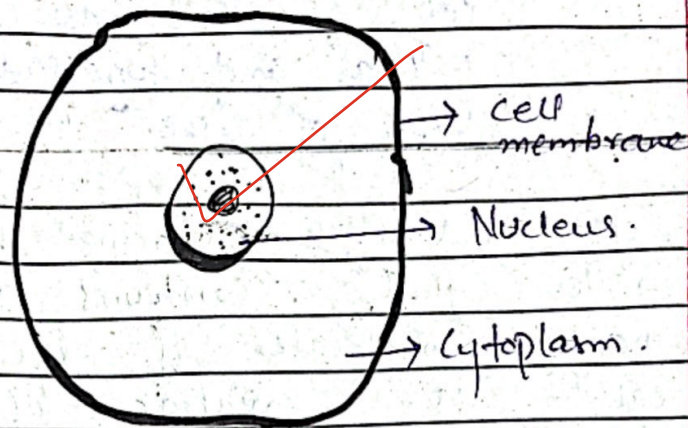 cell
membrane
Nucleus.
cytoplasm.